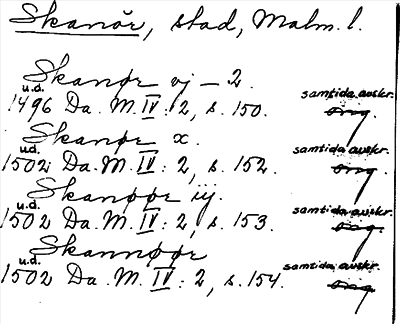 Skanör, stad, Malm. l.
Skanør vj - 2.
u.d. samtida avskr.
1496 Da. M. IV: 2, s. 150. orig.
Skanør x.
u.d. samtida avskr.
1502 Da. M. IV: 2, s. 152. orig.
Skanøør iij.
u.d. samtida avskr.
1502 Da. M. IV: 2, s. 153. orig.
Skannøør
u.d. samtida avskr.
1502 Da. M. IV: 2, s. 154. orig